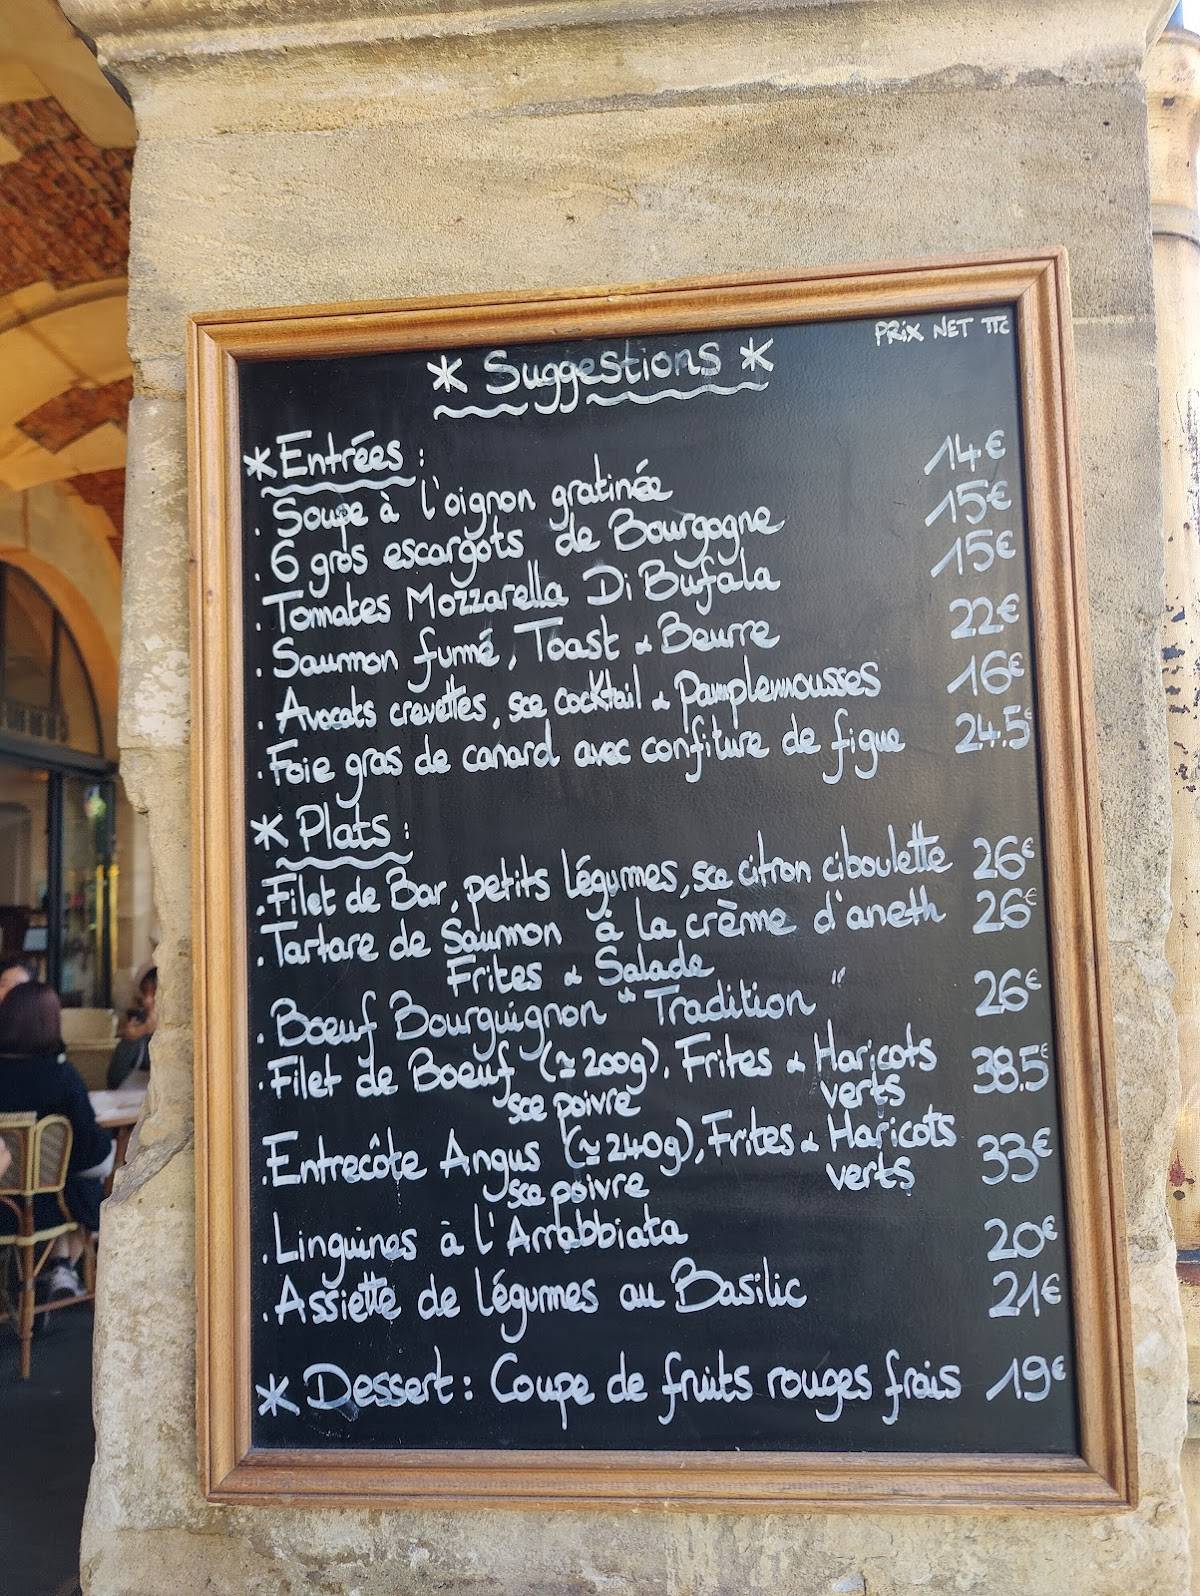 PRIX NET TTC
* Suggestions *
* Entrées :
. Soupe à l'oignon gratinée 14€
. 6 gros escargots de Bourgogne 15€
. Tomates Mozzarella Di Bufala 15€
. Saumon fumé, Toast & Beurre 22€
. Avocats crevettes, sce cocktail & Pamplemousses 16€
. Foie gras de canard avec confiture de figue 24.5€
* Plats :
. Filet de Bar, petits légumes, sce citron ciboulette 26€
. Tartare de Saumon à la crème d'aneth 26€
Frites & Salade
. Boeuf Bourguignon "Tradition" 26€
. Filet de Boeuf (≃ 200g), Frites & Haricots 38.5€
sce poivre verts
. Entrecôte Angus (≃ 240g), Frites & Haricots 33€
sce poivre verts
. Linguines à l'Arrabbiata 20€
. Assiette de légumes au Basilic 21€
* Dessert : Coupe de fruits rouges frais 19€